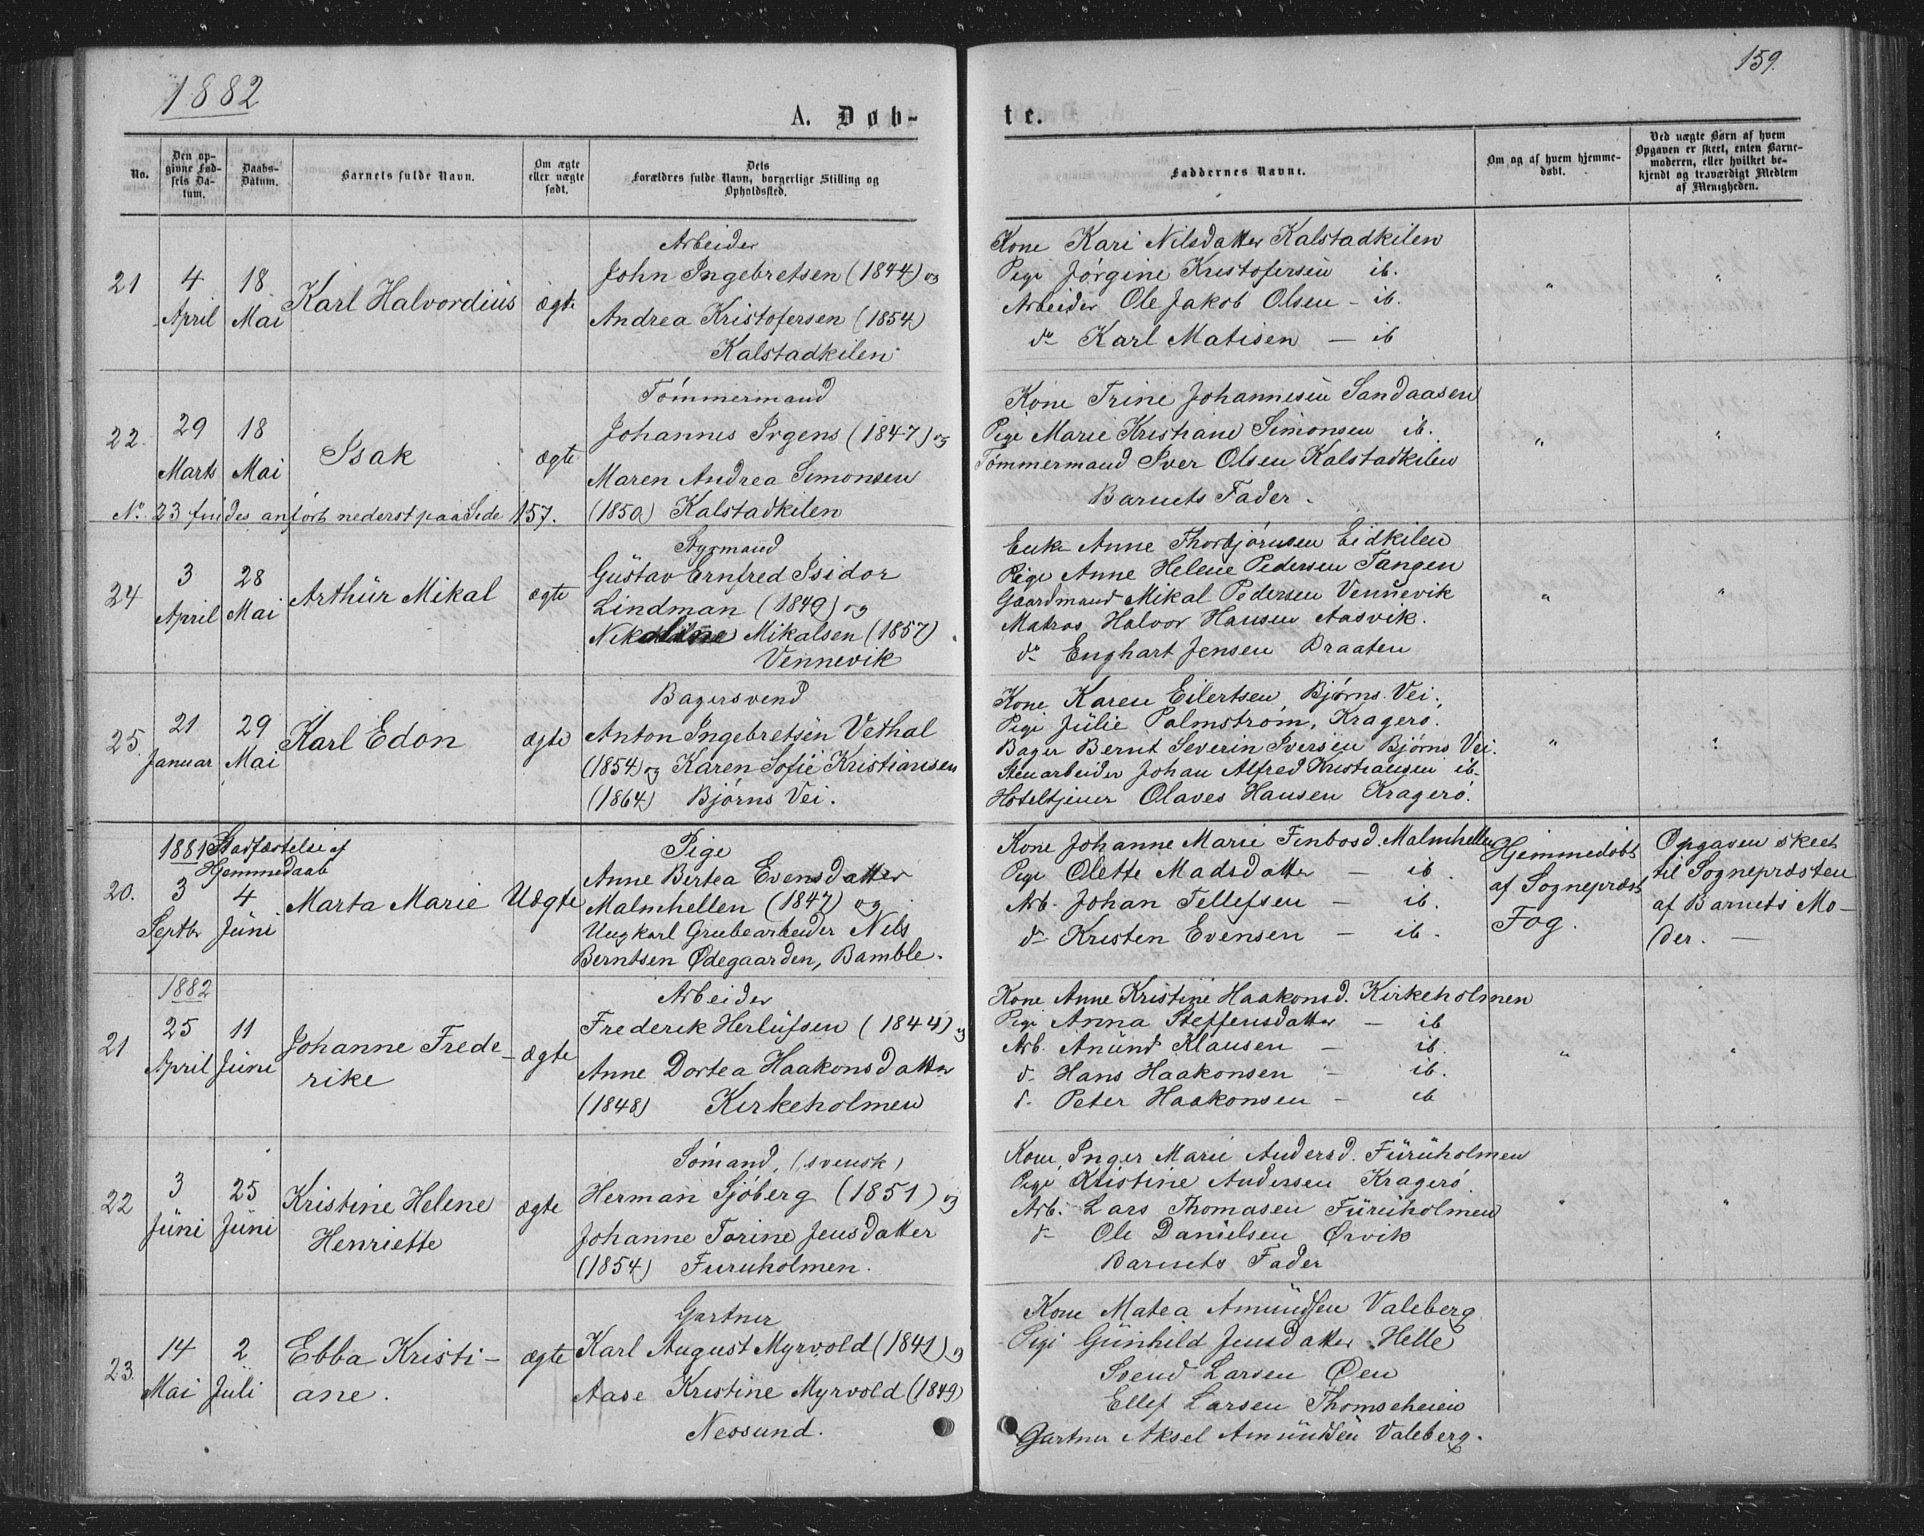 1882
159.
A. Døb-
te.
No.
Den op-
givne Fød-
sels Da-
tum.
Daabs-
Datum.
Barnets fulde Navn.
Om ægte
eller uægte
født.
Dets
Forældres fulde Navn, borgerlige Stilling og
Opholdssted.
Faddernes Navne.
Om og af hvem hjemme-
døbt.
Ved uægte Børn af hvem
Opgaven er skeet, enten Barne-
moderen, eller hvilket be-
kjendt og troværdigt Medlem
af Menigheden.
21
4
April
18
Mai
Karl Halvordius
ægte
Arbeider
John Ingebretsen (1844) og
Andrea Kristofersen (1854)
Kalstadkilen
Kone Kari Nilsdatter Kalstadkilen
Pige Jørgine Kristofersen ib.
Arbeider Ole Jakob Olsen - ib.
do Karl Matisen - ib
"
"
22.
29
Marts
18
Mai
Isak
ægte
Tømmermand
Johannes Irgens (1847) og
Maren Andrea Simonsen
(1850) Kalstadkilen
Kone Trine Johannesen Sandaasen
Pige Marie Kristiane Simonsen ib.
Tømmermand Iver Olsen Kalstadkilen
Barnets Fader.
"
"
No. 23 findes anført nederst paa Side 157.
24
3
April
28
Mai
Arthur Mikal
ægte
Styrmand
Gustav Ernfred Isidor
Lindman (1849) og
Nikoline Mikalsen (1857)
Vennevik
Enke Anne Thorbjørnsen Eidkilen
Pige Anne Helene Pedersen Tangen
Gaardmand Mikal Pedersen Vennevik
Matros Halvor Hansen Aasvik.
do Enghart Jensen Braaten
"
"
25.
21
Januar
29
Mai
Karl Edon
ægte
Bagersvend
Anton Ingebretsen Vethal
(1854) og Karen Sofie Kristiansen
(1864) Bjørns Vei.
Kone Karen Eilertsen, Bjørns Vei.
Pige Julie Palmstrøm, Kragerø.
Bager Bernt Severin Iversen Bjørns Vei.
Stenarbeider Johan Alfred Kristiansen ib.
Hoteltjener Olaves Hansen Kragerø.
"
"
20.
1881 Stadfæstelse af
Hjemmedaab
3
Septbr
4
Juni
Marta Marie
Uægte
Pige
Anne Bertea Evensdatter
Malmhellen (1847) og
Ungkarl Grubearbeider Nils
Berntsen Ødegaarden, Bamble.
Kone Johanne Marie Finbosd. Malmhellen
Pige Olette Madsdatter - ib.
Arb. Johan Tellefsen - ib.
do Kristen Evensen - ib.
Hjemmedøbt
af Sognepræst
Fog.
Opgaven skeet
til Sognepræsten
af Barnets Mo-
der. -
1882
21
25
April
11
Juni
Johanne Frede-
rike
ægte
Arbeider
Frederik Herlufsen (1844) og
Anne Dortea Haakonsdatter
(1848) Kirkeholmen
Kone Anne Kristine Haakonsd. Kirkeholmen
Pige Anna Steffensdatter - ib
Arb. Anund Klausen - ib.
d- Hans Haakonsen - ib.
d- Peter Haakonsen - ib
"
"
22
3
Juni
25
Juni
Kristine Helene
Henriette
ægte
Sømand, (svensk)
Herman Sjöberg (1851) og
Johanne Torine Jensdatter
(1854) Furuholmen.
Kone, Inger Marie Andersd. Furuholmen
Pige Kristine Andersen Kragerø.
Arb. Lars Thomasen Furuholmen
d- Ole Danielsen Ørvik
Barnets Fader
"
"
23.
14
Mai
2
Juli
Ebba Kristi-
ane.
ægte
Gartner
Karl August Myrvold (1841) og
Aase Kristine Myrvold (1849)
Nessund.
Kone Matea Amundsen Valeberg
Pige Gunhild Jensdatter Helle
Svend Larsen Øen
Ellef Larsen Thomseheien
Gartner Aksel Amundsen Valeberg.